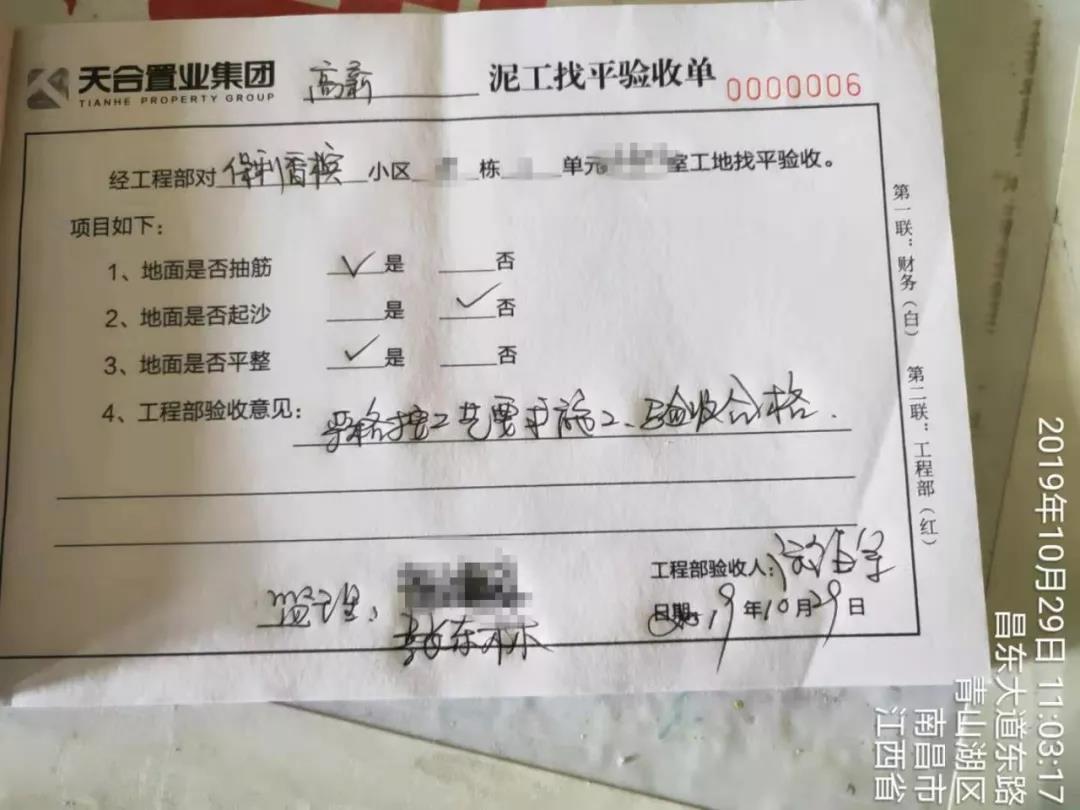 天合置业集团 高新 泥工找平验收单 0000006
TIANHE PROPERTY GROUP
经工程部对 保利香槟 小区 栋 单元 室工地找平验收。
项目如下:
1、地面是否抽筋 ✓是 否
2、地面是否起沙 是 ✓否
3、地面是否平整 ✓是 否
4、工程部验收意见: 严格按工艺要求施工、验收合格.
工程部验收人:
监理:
日期: 19年10月29日
第一联:财务(白)
第二联:工程部(红)
2019年10月29日 11:03:17
昌东大道东路
青山湖区
南昌市
江西省